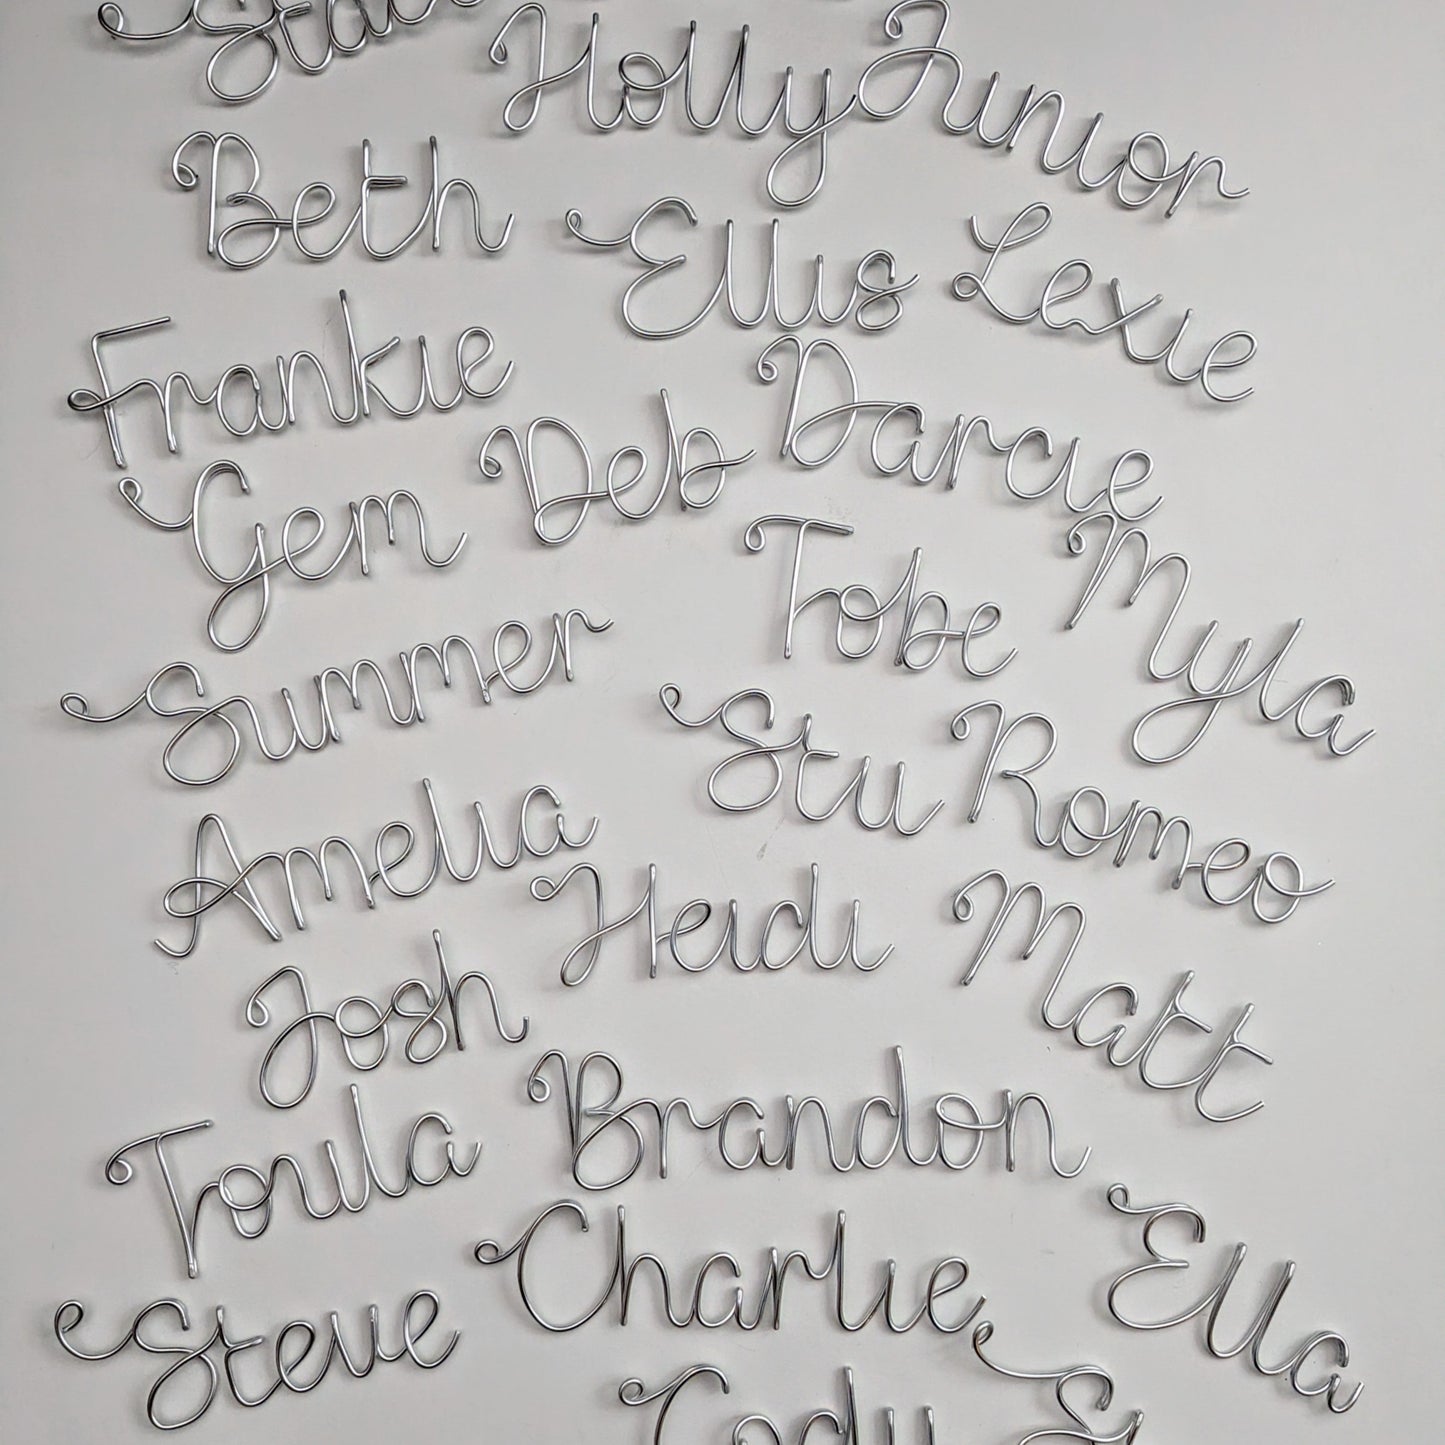 Holly Junior
Beth
Ellis Lexie
Frankie
Deb Darcie
Gem
Tobe Myla
Summer
Stu Romeo
Amelia
Heidi Matt
Josh
Brandon
Toula
Charlie Ella
Steve
Cody